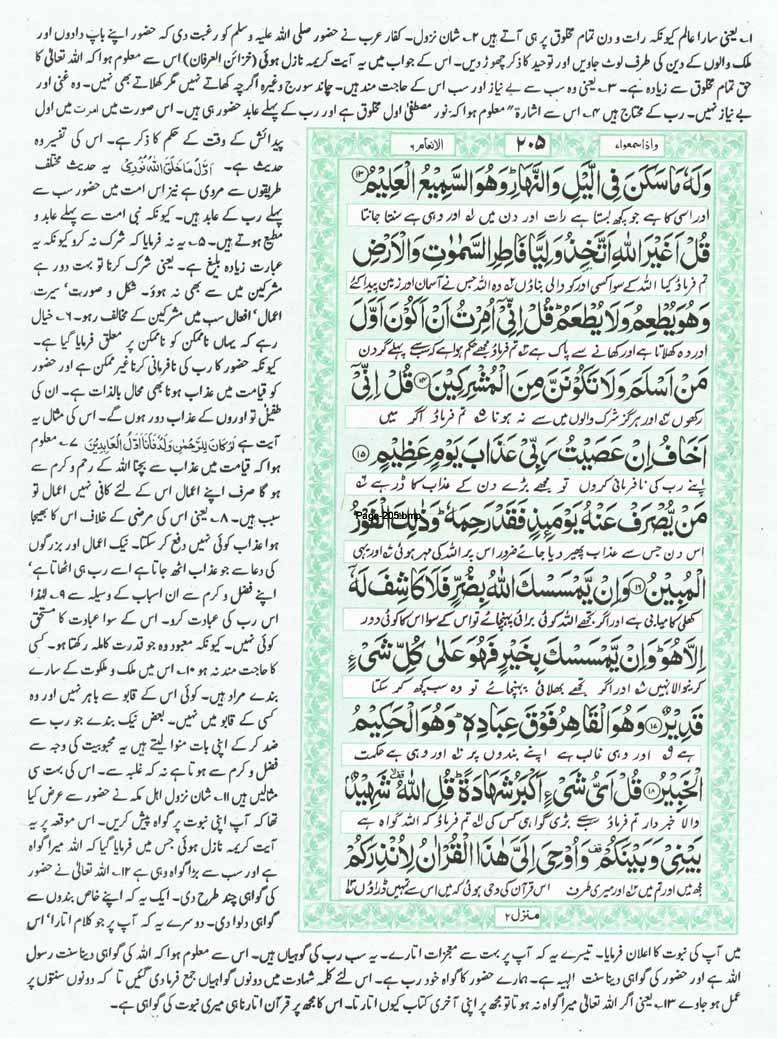 ۱۔ یعنی سارا عالم کیونکہ رات و دن تمام مخلوق پر ہی آتے ہیں ۲۔ شان نزول۔ کفار عرب نے حضور صلی اللہ علیہ وسلم کو رغبت دی کہ حضور اپنے باپ دادوں اور
ملک والوں کے دین کی طرف لوٹ جاویں اور توحید کا ذکر چھوڑ دیں۔ اس کے جواب میں یہ آیت کریمہ نازل ہوئی (خزائن العرفان) اس سے معلوم ہوا کہ اللہ تعالیٰ کا
حق تمام مخلوق سے زیادہ ہے۔ ۳۔ یعنی وہ سب سے بے نیاز اور سب اس کے حاجت مند ہیں۔ چاند سورج وغیرہ اگرچہ کھاتے نہیں مگر کھلاتے بھی نہیں۔ وہ غنی اور
بے نیاز نہیں۔ رب کے محتاج ہیں ۴۔ اس سے اشارۃً معلوم ہوا کہ نور مصطفیٰ اول مخلوق ہے اور رب کے پہلے عابد حضور ہی ہیں۔ اس صورت میں امرت میں اول
پیدائش کے وقت کے حکم کا ذکر ہے۔ اس کی تفسیر وہ
حدیث ہے۔ اَوَّلُ مَا خَلَقَ اللّٰهُ نُوْرِیْ یہ حدیث مختلف
طریقوں سے مروی ہے نیز اس امت میں حضور سب سے
پہلے رب کے عابد ہیں۔ کیونکہ نبی امت سے پہلے عابد و
مطیع ہوتے ہیں۔ ۵۔ یہ نہ فرمایا کہ شرک نہ کرو کیونکہ یہ
عبارت زیادہ بلیغ ہے۔ یعنی شرک کرنا تو بہت دور ہے
مشرکین میں سے بھی نہ ہوؤ۔ شکل و صورت' سیرت'
اعمال' افعال سب میں مشرکین کے مخالف رہو۔ ۶۔ خیال
رہے کہ یہاں ناممکن کو ناممکن پر معلق فرمایا گیا ہے۔
کیونکہ حضور کا رب کی نافرمانی کرنا غیر ممکن ہے اور حضور
کو قیامت میں عذاب ہونا بھی محال بالذات ہے۔ ان کی
طفیل تو اوروں کے عذاب دور ہوں گے۔ اس کی مثال یہ
آیت ہے لَوْ كَانَ لِلرَّحْمٰنِ وَلَدٌ فَاَنَا اَوَّلُ الْعَابِدِیْنَ ۷۔ معلوم
ہوا کہ قیامت میں عذاب سے بچنا اللہ کے رحم و کرم سے
ہو گا صرف اپنے اعمال اس کے لئے کافی نہیں اعمال تو
سبب ہیں۔ ۸۔ یعنی اس کی مرضی کے خلاف اس کا بھیجا
ہوا عذاب کوئی نہیں دفع کر سکتا۔ نیک اعمال اور بزرگوں
کی دعا سے جو عذاب اٹھ جاتا ہے اسے رب ہی اٹھاتا ہے'
اپنے فضل و کرم سے ان اسباب کے وسیلہ سے ۹۔ لہٰذا
اس رب کی عبادت کرو۔ اس کے سوا عبادت کا مستحق
کوئی نہیں۔ کیونکہ معبود وہ جو قدرت کاملہ رکھتا ہو۔ کسی
کا حاجت مند نہ ہو ۱۰۔ اس میں ملک و ملکوت کے سارے
بندے مراد ہیں۔ کوئی اس کے قابو سے باہر نہیں اور وہ
کسی کے قابو میں نہیں۔ بعض نیک بندے جو رب سے
ضد کر کے اپنی بات منوا لیتے ہیں یہ محبوبیت کی وجہ سے
فضل و کرم سے ہوتا ہے نہ کہ غلبہ سے۔ اس کی بہت سی
مثالیں ہیں ۱۱۔ شان نزول اہل مکہ نے حضور سے عرض کیا
تھا کہ آپ اپنی نبوت پر گواہ پیش کریں۔ اس موقعہ پر یہ
آیت کریمہ نازل ہوئی جس میں فرمایا گیا کہ اللہ میرا گواہ
ہے اور سب سے بڑا گواہ وہی ہے ۱۲۔ اللہ تعالیٰ نے حضور
کی گواہی چند طرح دی۔ ایک یہ کہ اپنے خاص بندوں سے
گواہی دلوا دی۔ دوسرے یہ کہ آپ پر جو کلام اتارا' اس
واذاسمعواء
۲۰۵
الانعام ۶
وَلَهٗ مَا سَكَنَ فِی الَّیْلِ وَالنَّهَارِ ؕ وَهُوَ السَّمِیْعُ الْعَلِیْمُ ۱۳
اور اسی کا ہے جو کچھ بستا ہے رات اور دن میں اور وہی ہے سنتا جانتا
قُلْ اَغَیْرَ اللّٰهِ اَتَّخِذُ وَلِیًّا فَاطِرِ السَّمٰوٰتِ وَالْاَرْضِ
تم فرماؤ کیا اللہ کے سوا کسی اور کو والی بناؤں وہ اللہ جس نے آسمان اور زمین پیدا کئے
وَهُوَ یُطْعِمُ وَلَا یُطْعَمُ ؕ قُلْ اِنِّیْۤ اُمِرْتُ اَنْ اَكُوْنَ اَوَّلَ
اور وہ کھلاتا ہے اور کھانے سے پاک ہے تم فرماؤ مجھے حکم ہوا ہے کہ سب سے پہلے گردن
مَنْ اَسْلَمَ وَلَا تَكُوْنَنَّ مِنَ الْمُشْرِكِیْنَ ۱۴ قُلْ اِنِّیْۤ
رکھوں اور ہرگز شرک والوں میں سے نہ ہونا تم فرماؤ اگر میں
اَخَافُ اِنْ عَصَیْتُ رَبِّیْ عَذَابَ یَوْمٍ عَظِیْمٍ ۱۵
اپنے رب کی نافرمانی کروں تو مجھے بڑے دن کے عذاب کا ڈر ہے
مَنْ یُّصْرَفْ عَنْهُ یَوْمَىِٕذٍ فَقَدْ رَحِمَهٗ ؕ وَذٰلِكَ الْفَوْزُ
Page-205.bmp
اس دن جس سے عذاب پھیر دیا جائے ضرور اس پر اللہ کی مہر ہوئی اور یہی
الْمُبِیْنُ ۱۶ وَاِنْ یَّمْسَسْكَ اللّٰهُ بِضُرٍّ فَلَا كَاشِفَ لَهٗۤ
کھلی کامیابی ہے اور اگر تجھے اللہ کوئی برائی پہنچائے تو اس کے سوا اس کا کوئی دور
اِلَّا هُوَ ؕ وَاِنْ یَّمْسَسْكَ بِخَیْرٍ فَهُوَ عَلٰى كُلِّ شَیْءٍ
کرنیوالا نہیں اور اگر تجھے بھلائی پہنچائے تو وہ سب کچھ کر سکتا
قَدِیْرٌ ۱۷ وَهُوَ الْقَاهِرُ فَوْقَ عِبَادِهٖ ؕ وَهُوَ الْحَكِیْمُ
ہے اور وہی غالب ہے اپنے بندوں پر اور وہی ہے حکمت
الْخَبِیْرُ ۱۸ قُلْ اَیُّ شَیْءٍ اَكْبَرُ شَهَادَةً ؕ قُلِ اللّٰهُ ۙ شَهِیْدٌۢ
والا خبردار تم فرماؤ سب سے بڑی گواہی کس کی تم فرماؤ کہ اللہ گواہ ہے
بَیْنِیْ وَبَیْنَكُمْ ۫ وَاُوْحِیَ اِلَیَّ هٰذَا الْقُرْاٰنُ لِاُنْذِرَكُمْ
مجھ میں اور تم میں اور میری طرف اس قرآن کی وحی ہوئی کہ میں اس سے تمہیں ڈراؤں
منزل ۲
میں آپ کی نبوت کا اعلان فرمایا۔ تیسرے یہ کہ آپ پر بہت سے معجزات اتارے۔ یہ سب رب کی گوہیاں ہیں۔ اس سے معلوم ہوا کہ اللہ کی گواہی دینا سنت رسول
اللہ ہے اور حضور کی گواہی دینا سنت الہیہ ہے۔ ہمارے حضور کا گواہ خود رب ہے۔ اس لئے کلمہ شہادت میں دونوں گواہیاں جمع فرما دی گئیں تا کہ دونوں سنتوں پر
عمل ہو جاوے ۱۳۔ یعنی اگر اللہ تعالیٰ میرا گواہ نہ ہوتا تو مجھ پر اپنی آخری کتاب کیوں اتارتا۔ اس کا مجھ پر قرآن اتارنا ہی میری نبوت کی گواہی ہے۔